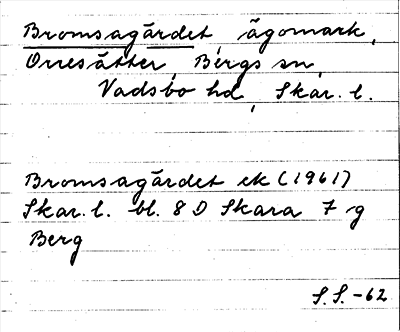 Bromsagärdet ägomark,
Orresäter, Bergs sn,
Vadsbo hd, Skar. l.
Bromsagärdet ek (1961)
Skar. l. bl. 8 D Skara 7 g
Berg
S.S. -62